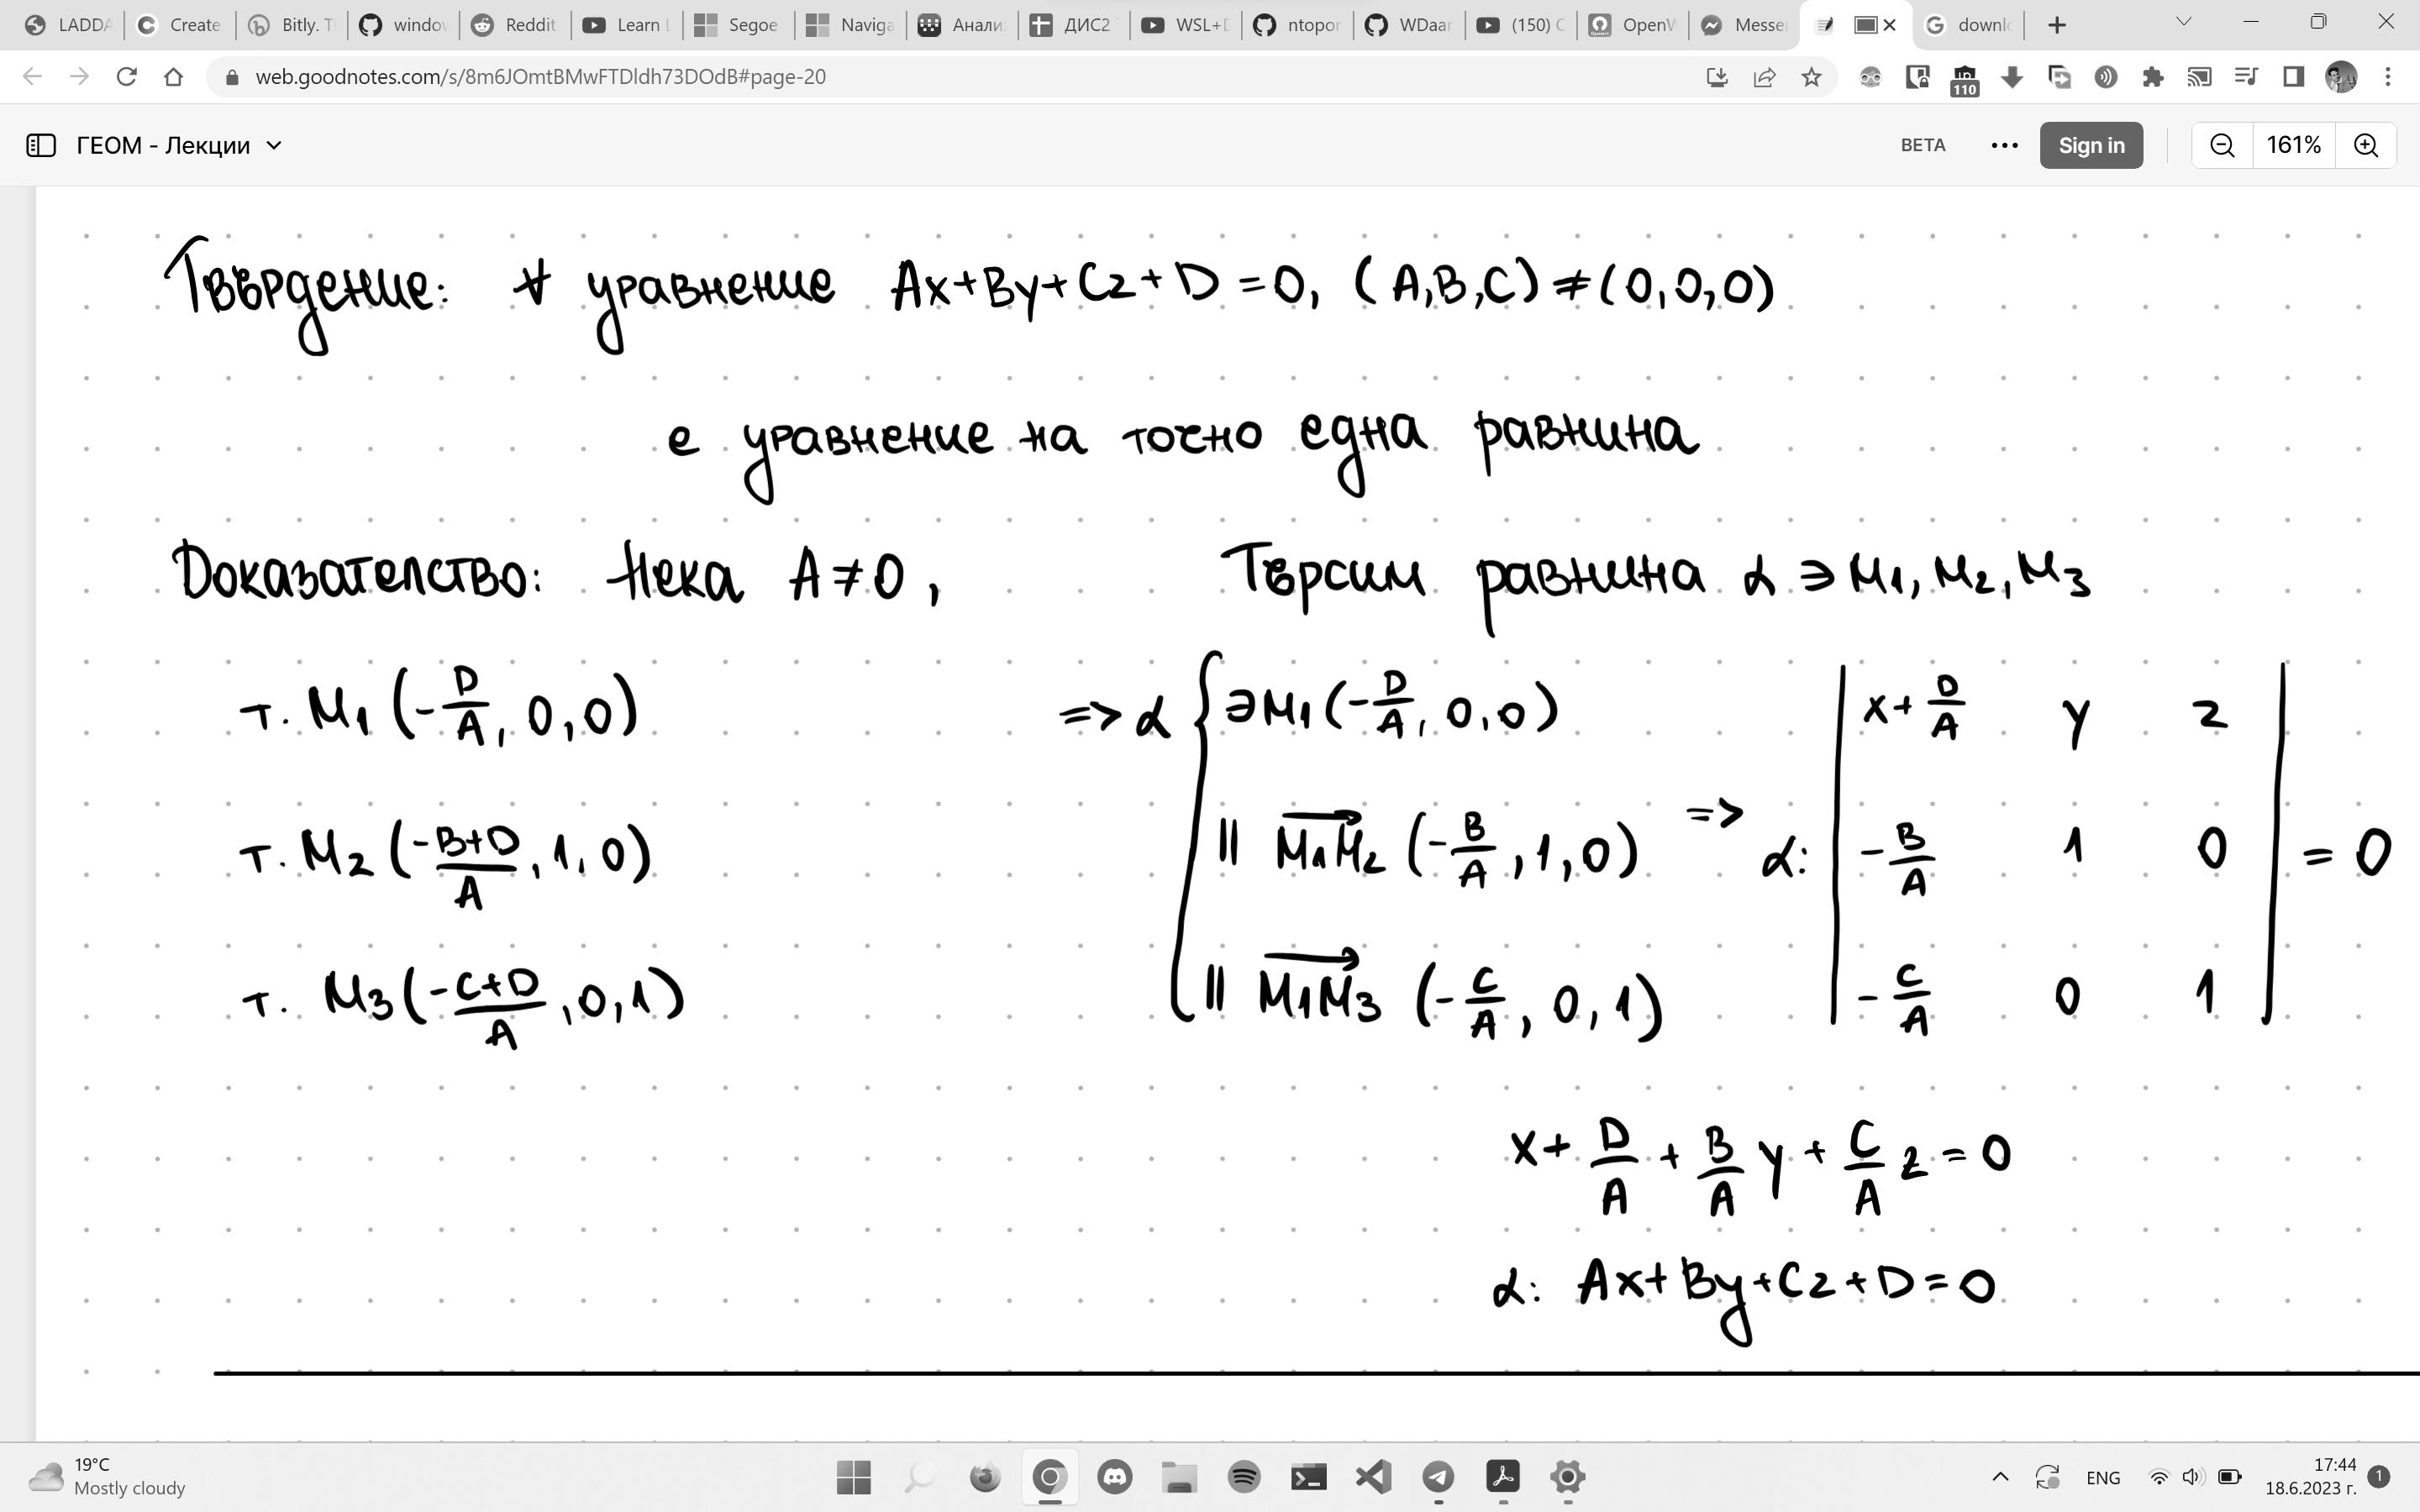 LADDA Create Bitly. T windov Reddit Learn L Segoe Naviga Анали ДИС2 WSL+D ntopor WDaar (150) C OpenW Messe downlo
web.goodnotes.com/s/8m6JOmtBMwFTDldh73DOdB#page-20
110
ГЕОМ - Лекции BETA ... Sign in 161%
Твърдение: ∀ уравнение Ax+By+Cz+D=0, (A,B,C)≠(0,0,0)
е уравнение на точно една равнина
Доказателство: Нека A≠0, Търсим равнина α ∋ M1, M2, M3
т. M1 (-D/A, 0, 0) => α { ∋ M1 (-D/A, 0, 0) | x+D/A y z |
т. M2 (-B+D/A, 1, 0) || M1M2 (-B/A, 1, 0) => α: | -B/A 1 0 | = 0
т. M3 (-C+D/A, 0, 1) || M1M3 (-C/A, 0, 1) | -C/A 0 1 |
x+D/A+B/A y+C/A z=0
α: Ax+By+Cz+D=0
19°C
Mostly cloudy
ENG
17:44
18.6.2023 г.
1